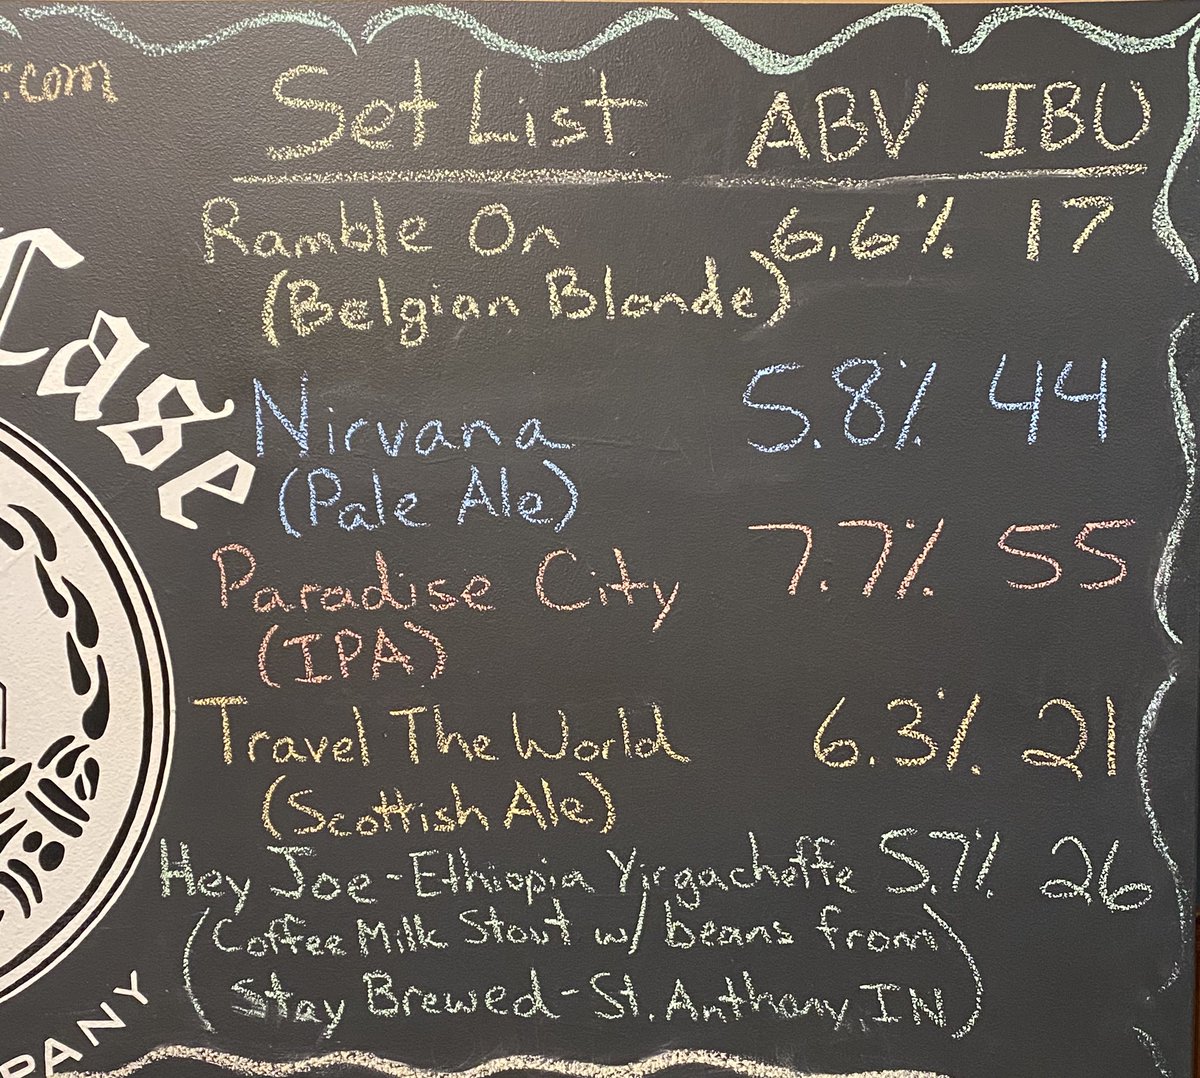 .com
Set List ABV IBU
Ramble On 6.6% 17
(Belgian Blonde)
Nirvana 5.8% 44
(Pale Ale)
Paradise City 7.7% 55
(IPA)
Travel The World 6.3% 21
(Scottish Ale)
Hey Joe - Ethiopia Yirgacheffe 5.7% 26
(Coffee Milk Stout w/ beans from
Stay Brewed - St. Anthony, IN)
Case
PANY